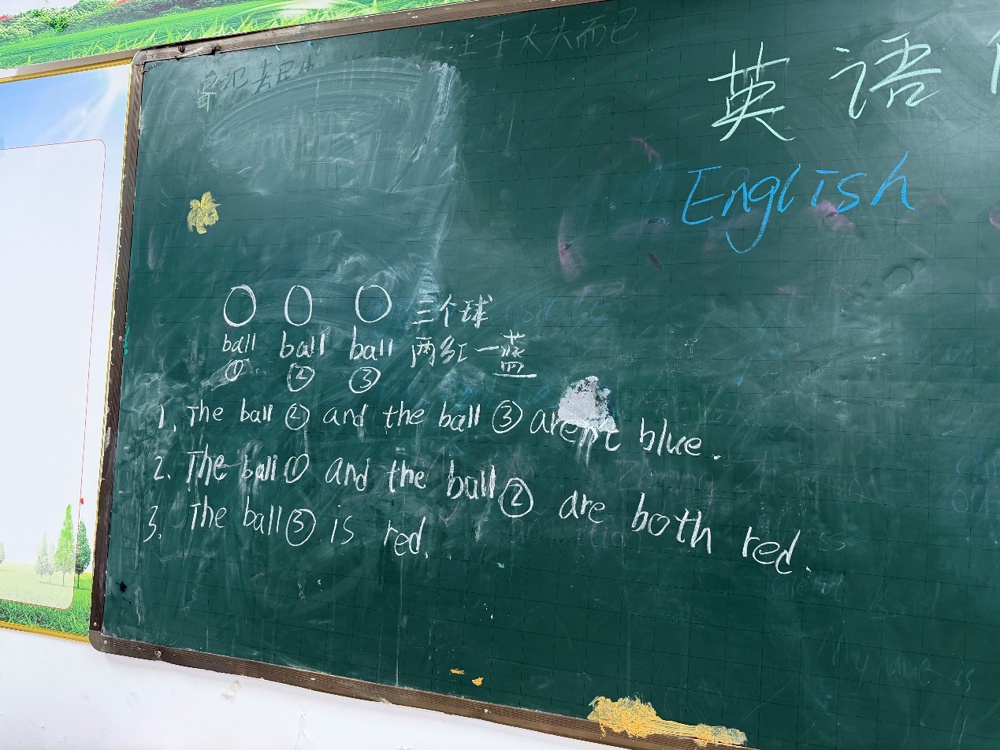 英语
English
三个球
ball ball ball 两红一蓝
① ② ③
1. The ball ② and the ball ③ aren't blue.
2. The ball ① and the ball ② are both red.
3. The ball ③ is red.